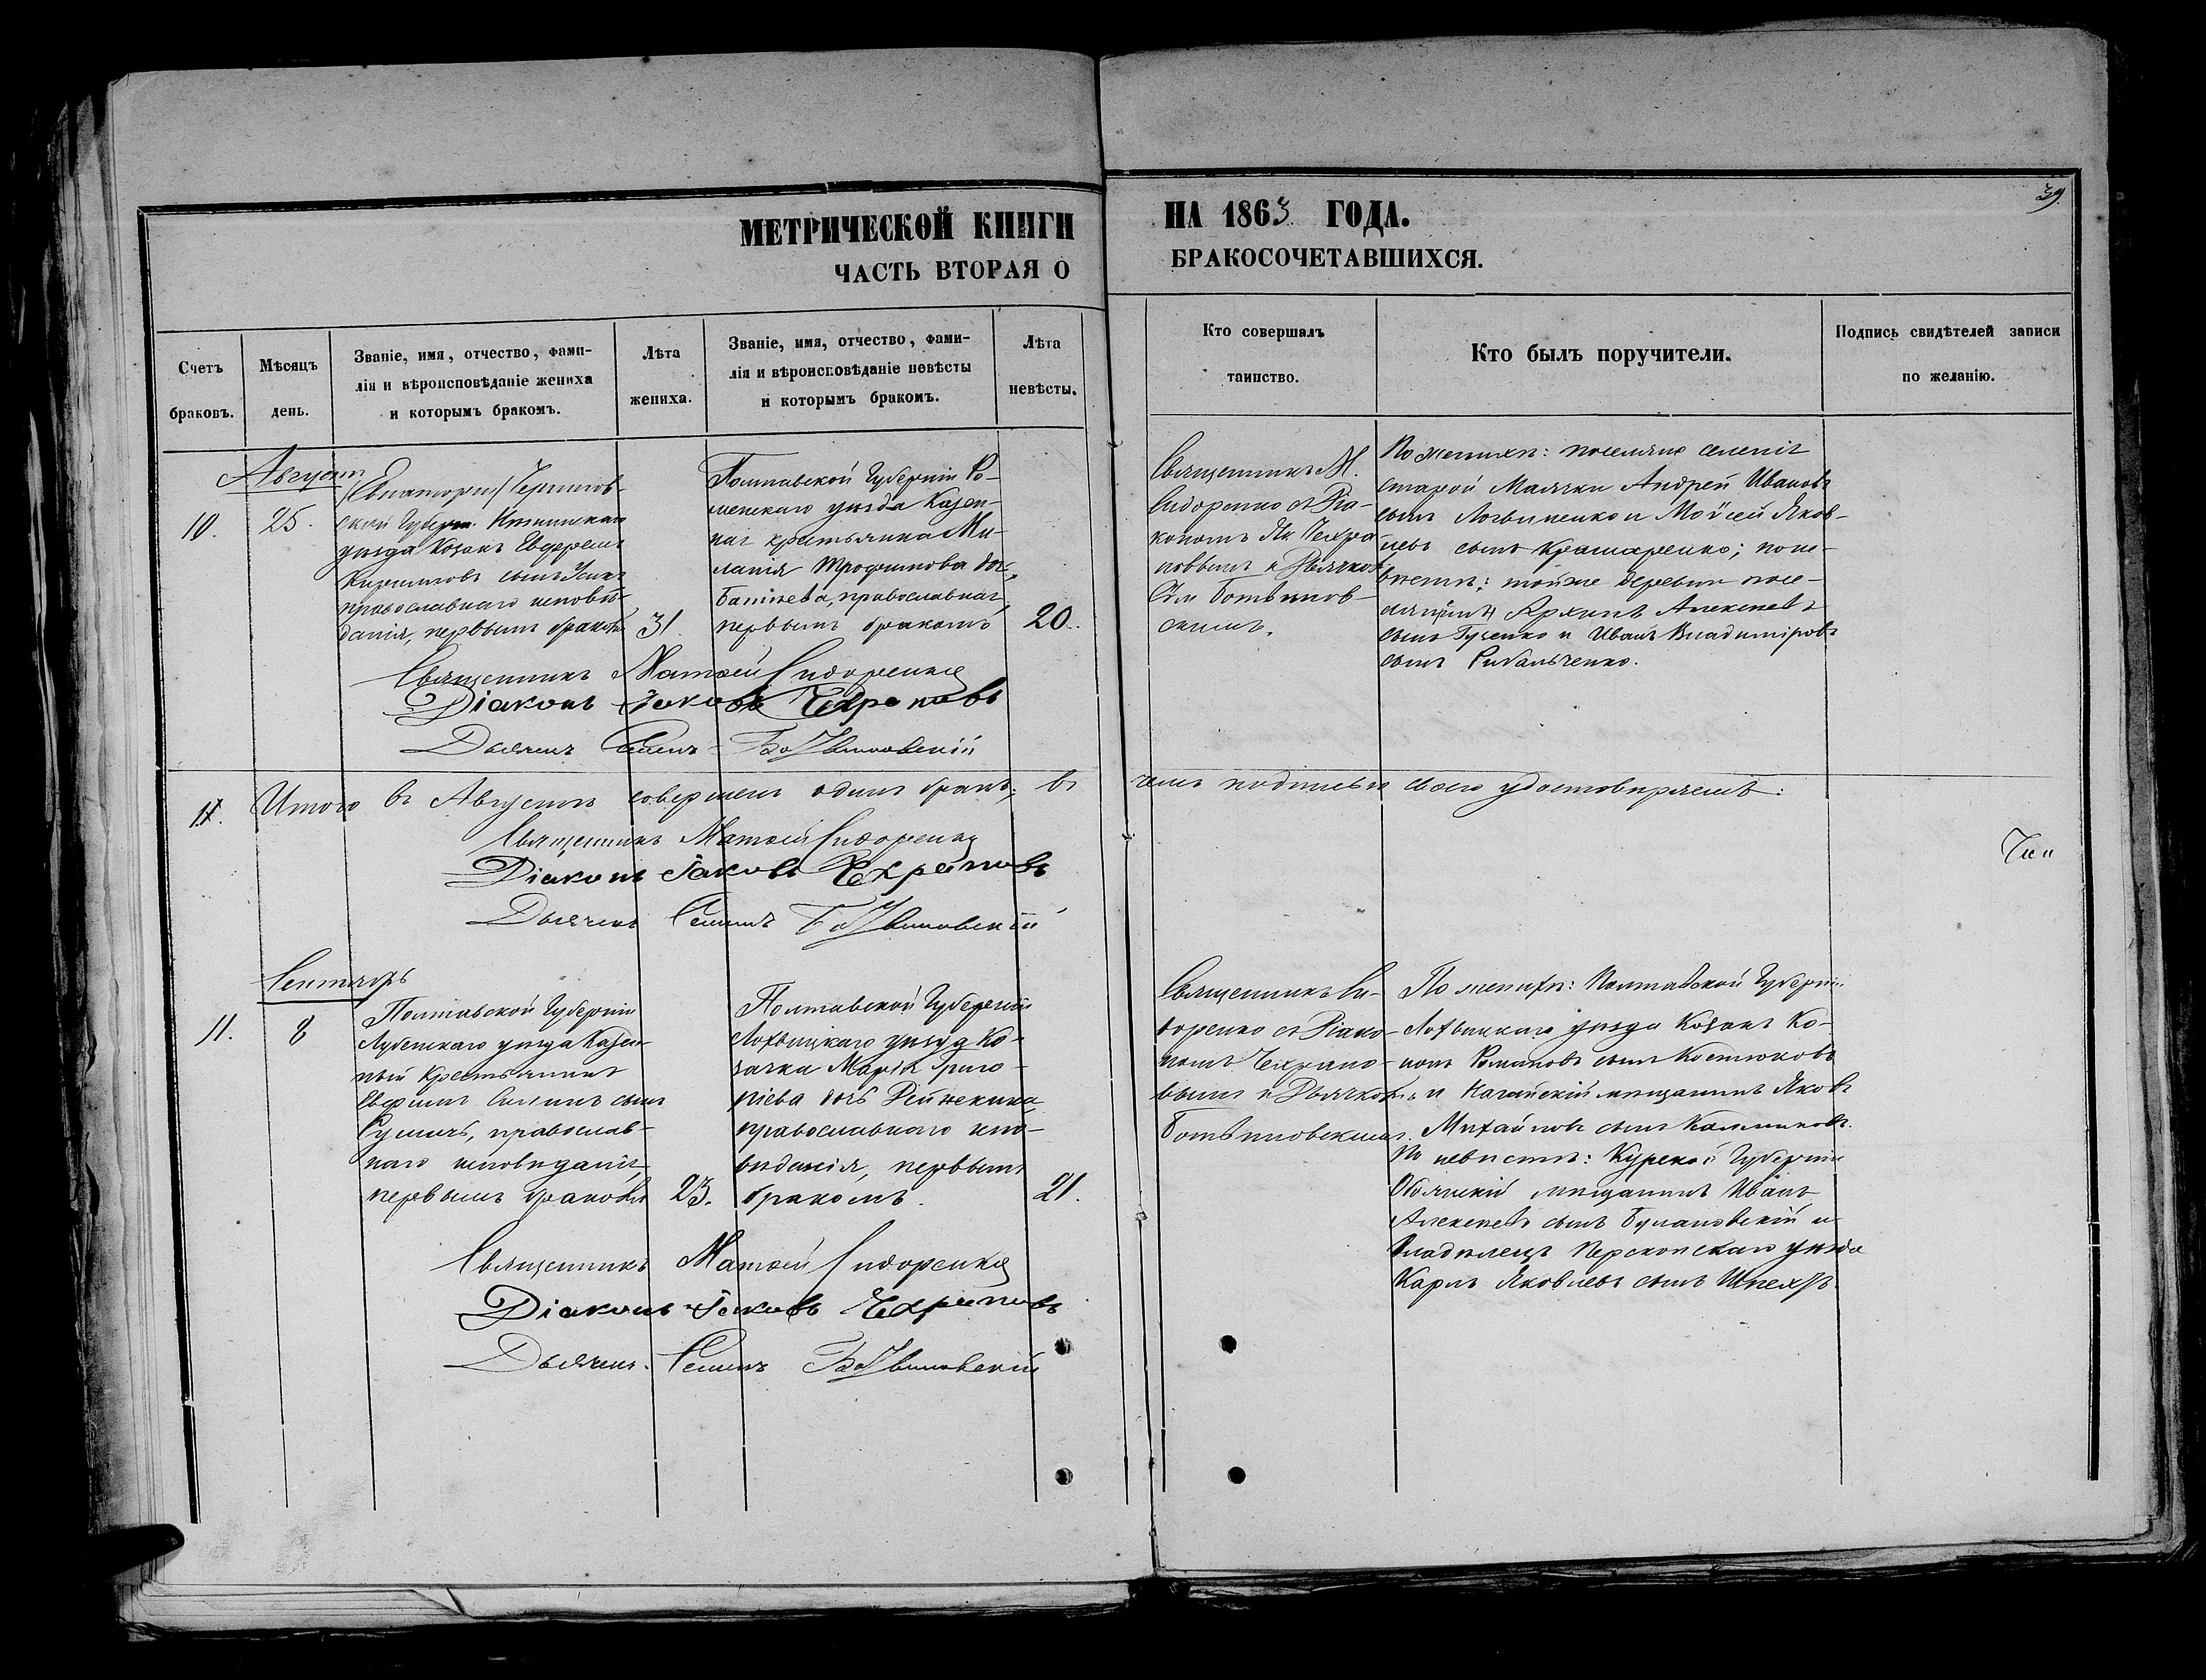 МЕТРИЧЕСКОЙ КНИГИ
НА 1863 ГОДА.
39
ЧАСТЬ ВТОРАЯ О
БРАКОСОЧЕТАВШИХСЯ.
Счетъ
браковъ.
Мѣсяцъ
день.
Званіе, имя, отчество, фами-
лія и вѣроисповѣданіе жениха
и которымъ бракомъ.
Лѣта
жениха.
Званіе, имя, отчество, фами-
лія и вѣроисповѣданіе невѣсты
и которымъ бракомъ.
Лѣта
невѣсты.
Кто совершалъ
таинство.
Кто былъ поручители.
Подпись свидѣтелей записи
по желанію.
Августъ
10.
25.
Чернигов-
ской Губерн.
уѣзда Козакъ
сынъ
православнаго исповѣ-
данія, первымъ бракомъ
31.
Полтавской Губерніи Ро-
менскаго уѣзда Казен-
ная крестьянка Ме-
ланія Трофимова доч.
православная
первымъ бракомъ
20.
Священникъ М.
Сидоренко съ Діа-
кономъ Як. Чехра-
новымъ и Дьячком
Сем. Ботвинов-
скимъ.
По женихѣ: поселяне селенія
старой Маячки Андрей Ивановъ
сынъ Логвиненко и Мойсей Яков-
левъ сынъ Крамаренко; по не-
вѣстѣ: тойже деревни посе-
Архипъ Алексѣевъ
сынъ Гученко и Иванъ Владиміровъ
сынъ Рибальченко.
Священникъ Матѳей Сидоренко
Діаконъ Іаковъ Чехрановъ
Дьячекъ Семенъ Ботвиновскій
Итого въ Августѣ совершенъ одинъ бракъ; въ
чемъ подписью своею удостовѣряемъ:
Священникъ Матѳей Сидоренко
Діаконъ Іаковъ Чехрановъ
Дьячекъ Семенъ Ботвиновскій
Сентябрь
11.
8
Полтавской Губерніи
Лубенскаго уѣзда Казен-
ный Крестьянинъ
сынъ
православ-
наго исповѣданія,
первымъ бракомъ
23.
Полтавской Губерніи
Лохвицкаго уѣзда Ко-
зачка Марія Григо-
ріева дочь Рейнекина,
православнаго испо-
вѣданія, первымъ
бракомъ.
21.
Священникъ Си-
доренко съ Діако-
номъ Чехрано-
вымъ и Дьячком
Ботвиновскимъ.
По женихѣ: Полтавской Губерніи
Лохвицкаго уѣзда Козакъ Ко-
нонъ Романовъ сынъ Костюковъ
и Ногайскій мѣщанинъ Яковъ
Михайловъ сынъ Калениковъ.
По невѣстѣ: Курской Губерніи
Обоянскій мѣщанинъ Иванъ
Алексѣевъ сынъ Булановскій и
владѣлецъ Перекопскаго уѣзда
Карлъ Яковлевъ сынъ
Священникъ Матѳей Сидоренко
Діаконъ Іаковъ Чехрановъ
Дьячекъ Семенъ Ботвиновскій